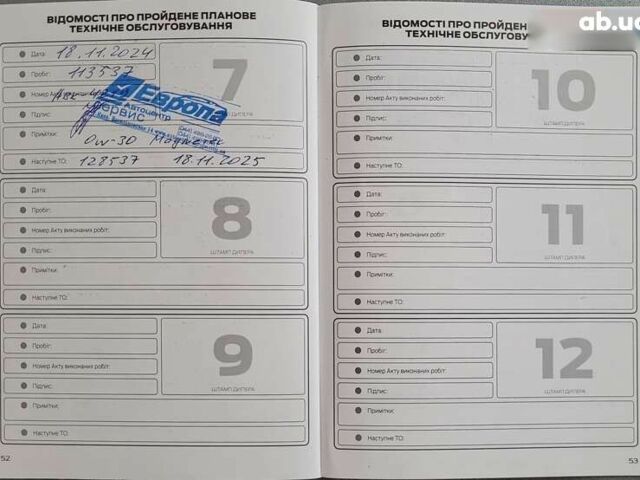 ВІДОМОСТІ ПРО ПРОЙДЕНЕ ПЛАНОВЕ
ТЕХНІЧНЕ ОБСЛУГОВУВАННЯ
Дата: 18.11.2024
Пробіг: 113537
Номер Акту
Підпис:
Примітки: 0w-30
Наступне ТО: 128537 18.11.2025
7
Європа
Автоцентр
сервис
Дата:
Пробіг:
Номер Акту виконаних робіт:
Підпис:
Примітки:
Наступне ТО:
8
ШТАМП ДИЛЕРА
Дата:
Пробіг:
Номер Акту виконаних робіт:
Підпис:
Примітки:
Наступне ТО:
9
ШТАМП ДИЛЕРА
52
ab.ua
ВІДОМОСТІ ПРО ПРОЙДЕН
ТЕХНІЧНЕ ОБСЛУГОВУ
Дата:
Пробіг:
Номер Акту виконаних робіт:
Підпис:
Примітки:
Наступне ТО:
10
ШТАМП ДИЛЕРА
Дата:
Пробіг:
Номер Акту виконаних робіт:
Підпис:
Примітки:
Наступне ТО:
11
ШТАМП ДИЛЕРА
Дата:
Пробіг:
Номер Акту виконаних робіт:
Підпис:
Примітки:
Наступне ТО:
12
ШТАМП ДИЛЕРА
53